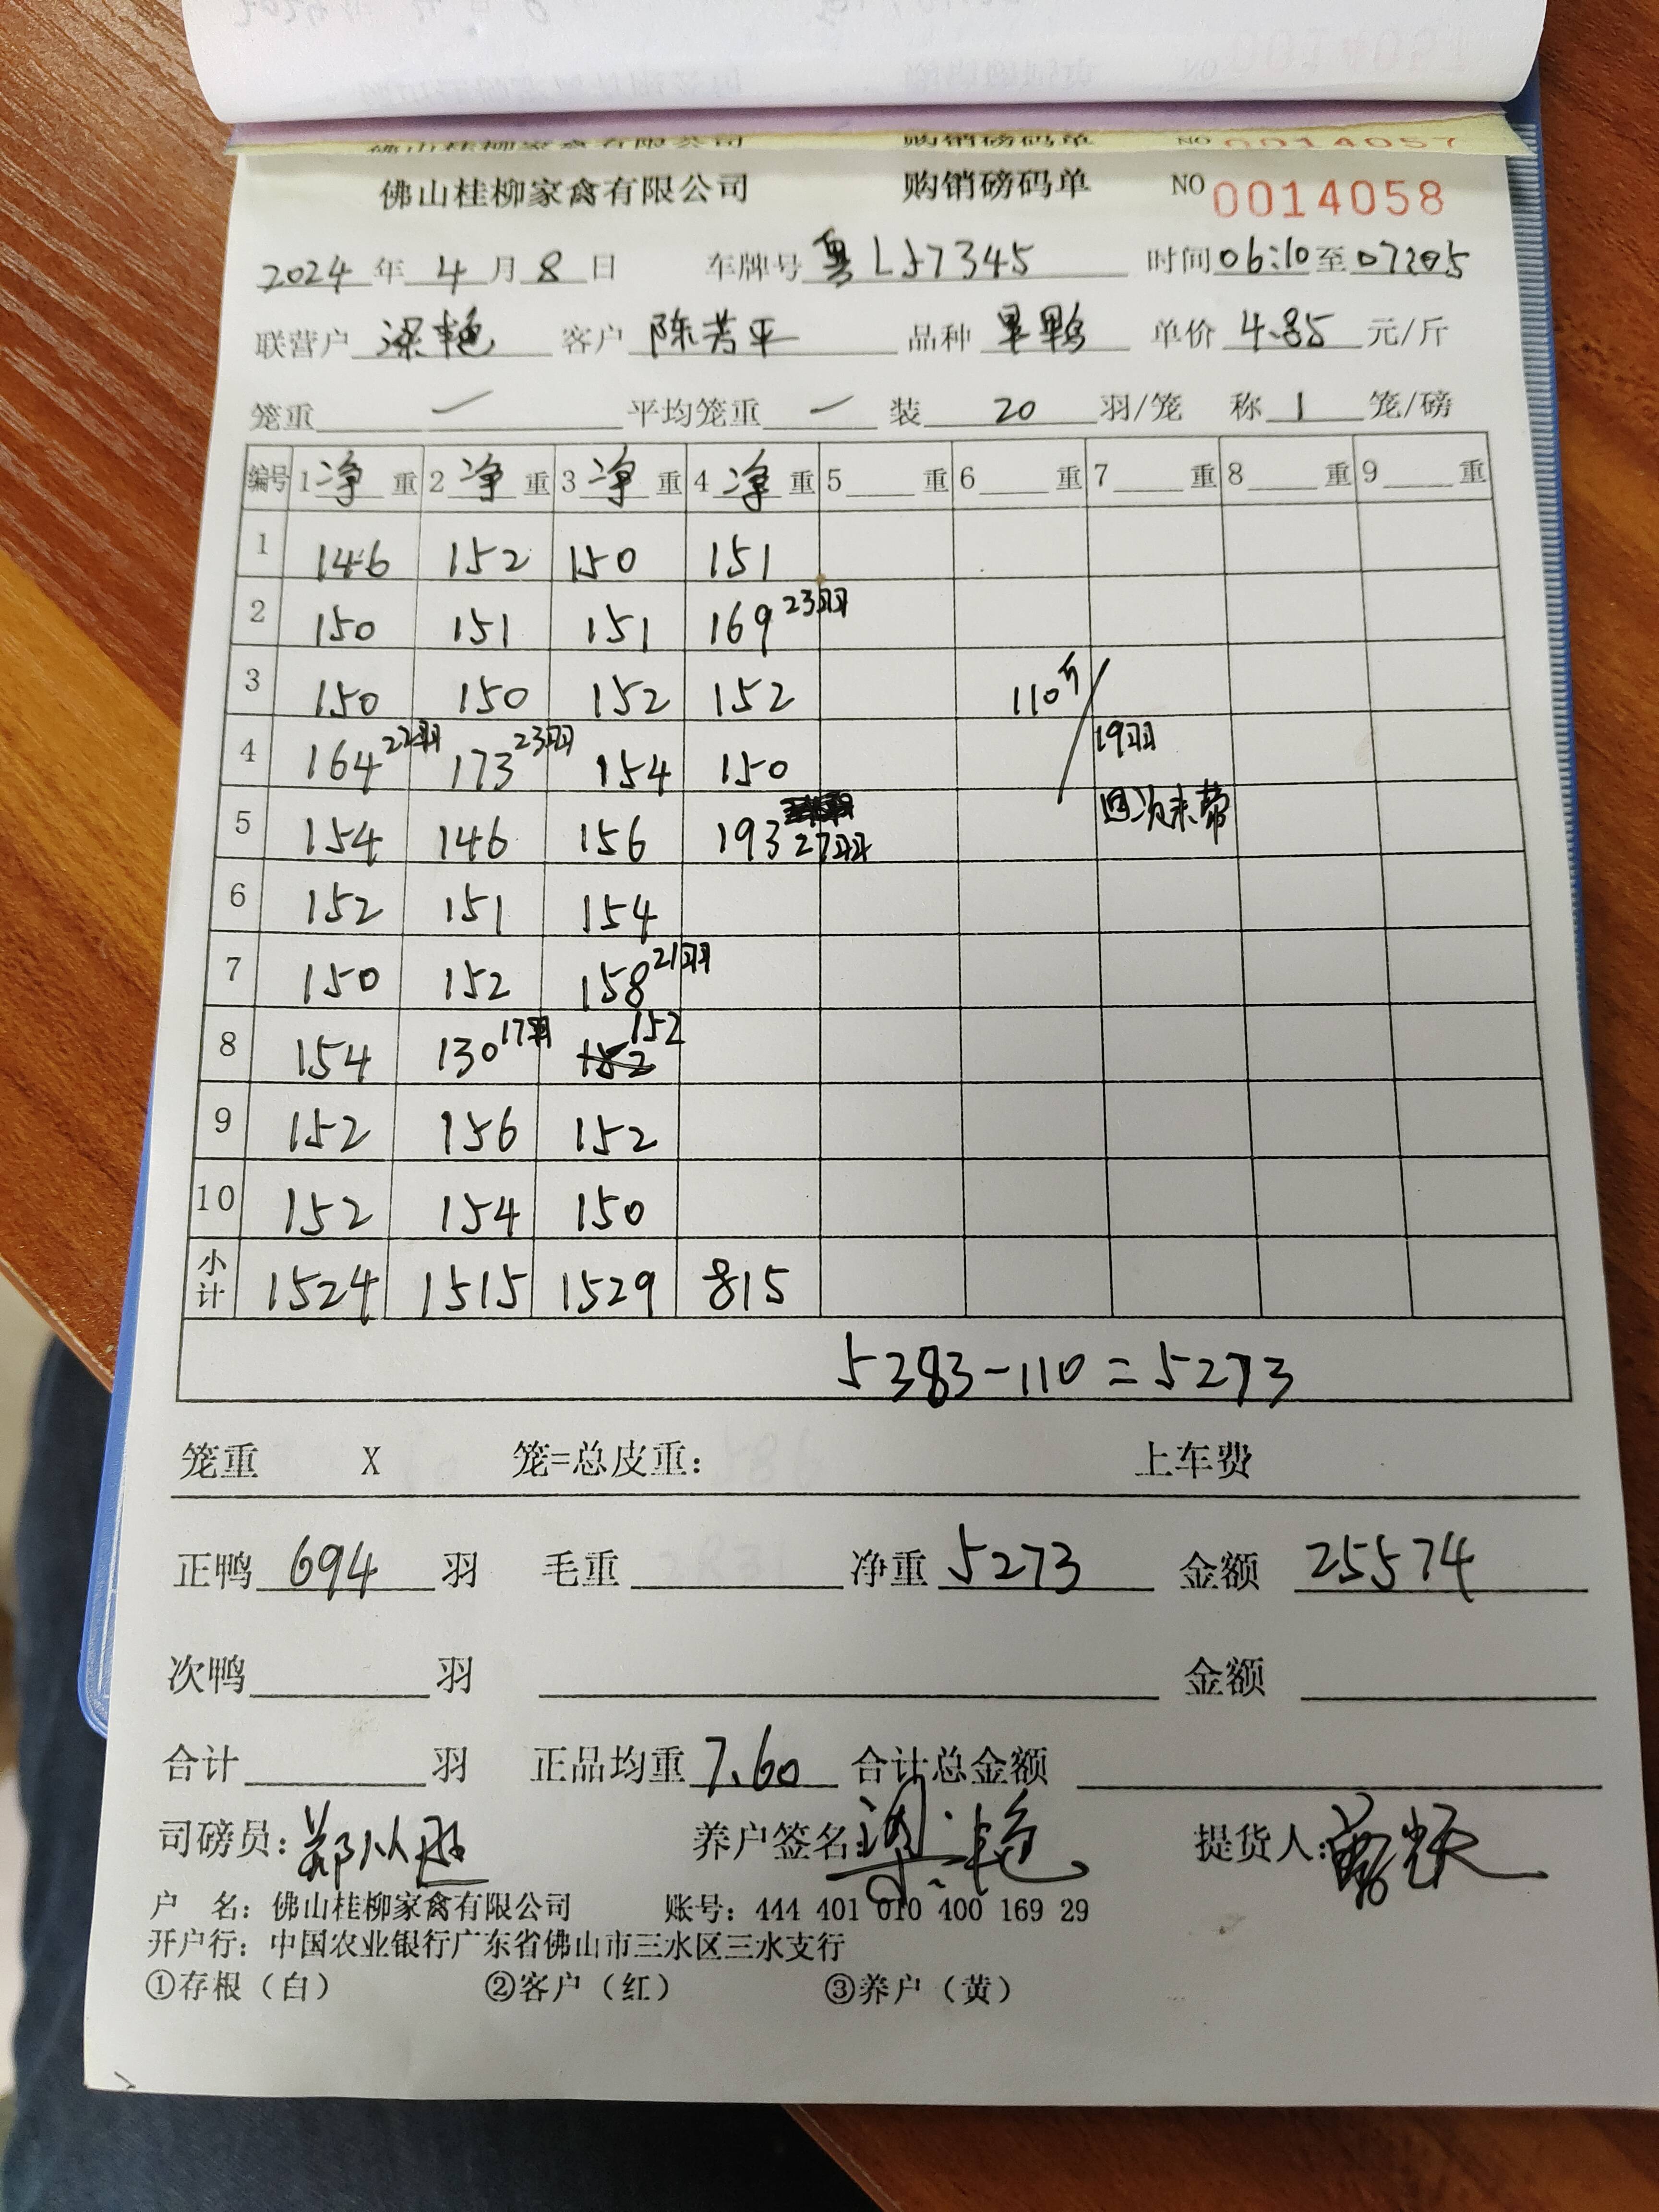 佛山桂柳家禽有限公司 购销磅码单 NO 0014057
佛山桂柳家禽有限公司 购销磅码单 NO 0014058
2024 年 4 月 8 日 车牌号 粤LJ7345 时间 06:10 至 07:05
联营户 梁艳 客户 陈芳平 品种 单价 4.85 元/斤
笼重 一 平均笼重 一 装 20 羽/笼 称 1 笼/磅
编号 1 净 重 2 净 重 3 净 重 4 净 重 5 重 6 重 7 重 8 重 9 重
1 146 152 150 151
2 150 151 151 169 23羽
3 150 150 152 152 110斤/
4 164 22羽 173 23羽 154 150 19羽
5 154 146 156 193 27羽 回次未带
6 152 151 154
7 150 152 158 21羽
8 154 130 17羽 152 152
9 152 156 152
10 152 154 150
小计 1524 1515 1529 815
5383-110=5273
笼重 X 笼=总皮重: 上车费
正鸭 694 羽 毛重 净重 5273 金额 25574
次鸭 羽 金额
合计 羽 正品均重 7.60 合计总金额
司磅员: 养户签名: 梁艳 提货人:
户 名: 佛山桂柳家禽有限公司 账号: 444 401 010 400 169 29
开户行: 中国农业银行广东省佛山市三水区三水支行
①存根（白） ②客户（红） ③养户（黄）